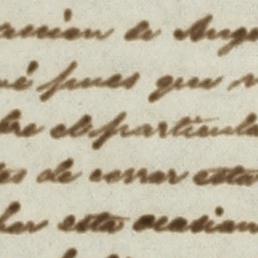 acion de Ang
vé pues que
bre el particula
es de cerrar esta
ber esta ocasion